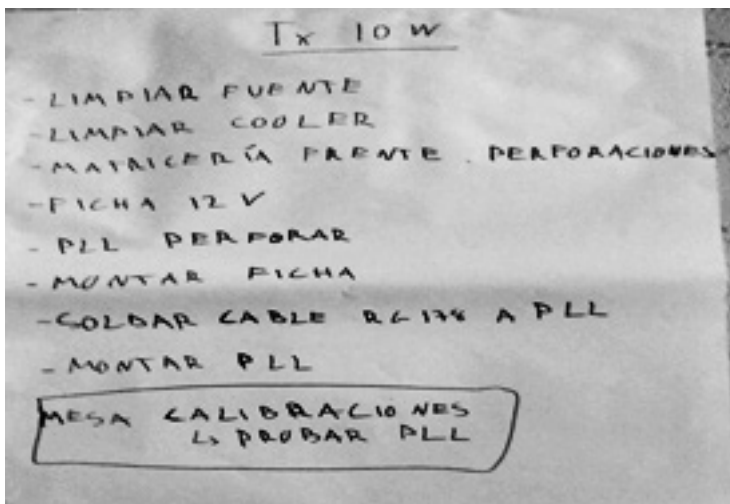 Tx 10 W
- LIMPIAR FUENTE
- LIMPIAR COOLER
- MATRICERÍA FRENTE. PERFORACIONES
- FICHA 12 V
- PLL PERFORAR
- MONTAR FICHA
- SOLDAR CABLE RG 178 A PLL
- MONTAR PLL
MESA CALIBRACIONES
↳ PROBAR PLL